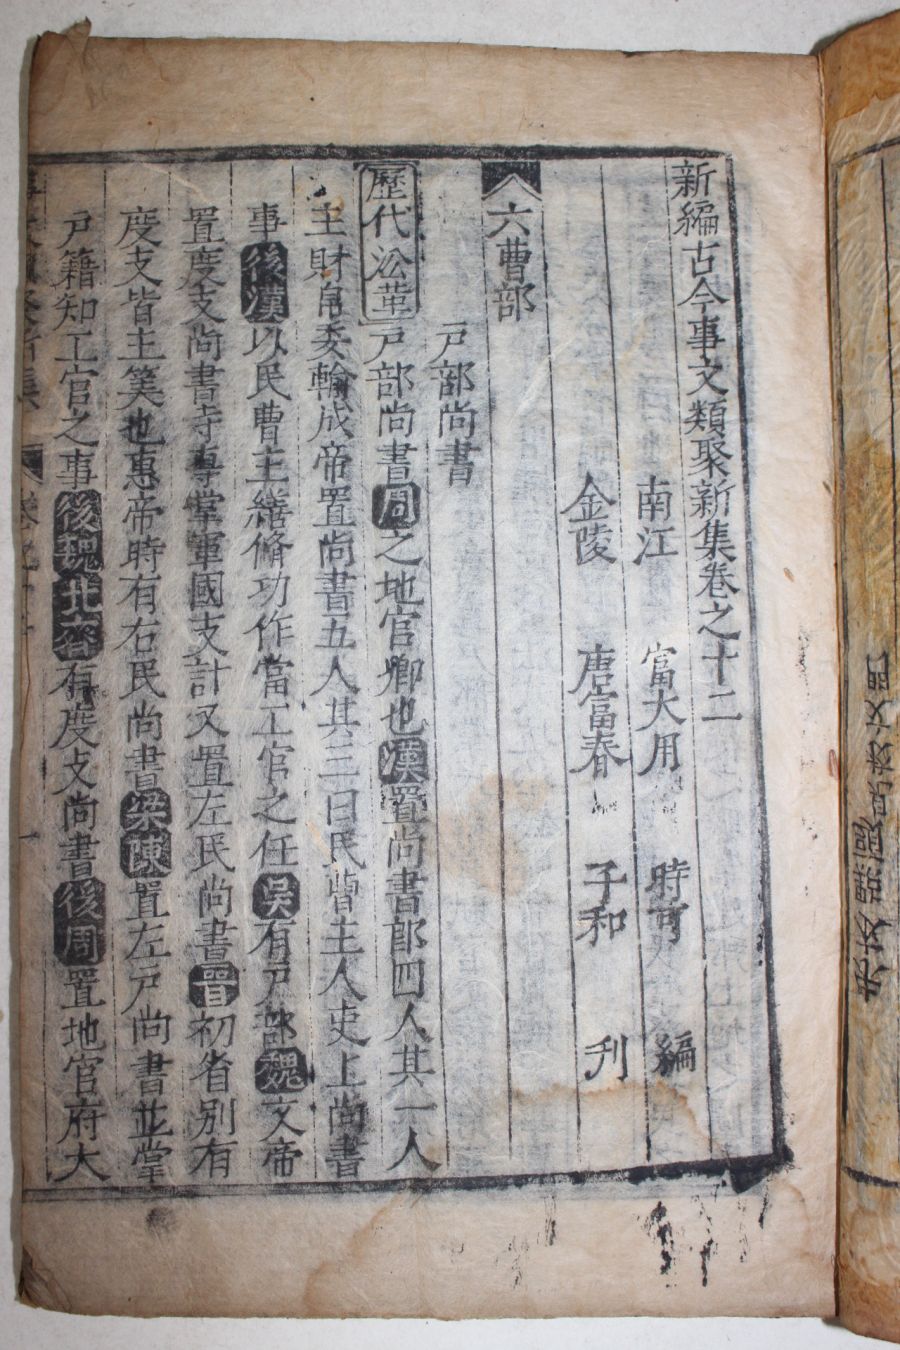 新編古今事文類聚新集卷之十二
南江 富大用 時可 編
金陵 唐富春 子和 刋
六曹部
戸部尚書
歷代沿革 戸部尚書周之地官卿也漢置尚書郎四人其一人
主財帛委輸成帝置尚書五人其三曰民曹主人吏上尚書
事後漢以民曹主繕脩功作當工官之任吳有戸部魏文帝
置度支尚書寺專掌軍國支計又置左民尚書晉初省別有
度支皆主筭也惠帝時有右民尚書梁陳置左戸尚書並掌
戸籍知工官之事後魏北齊有度支尚書後周置地官府大